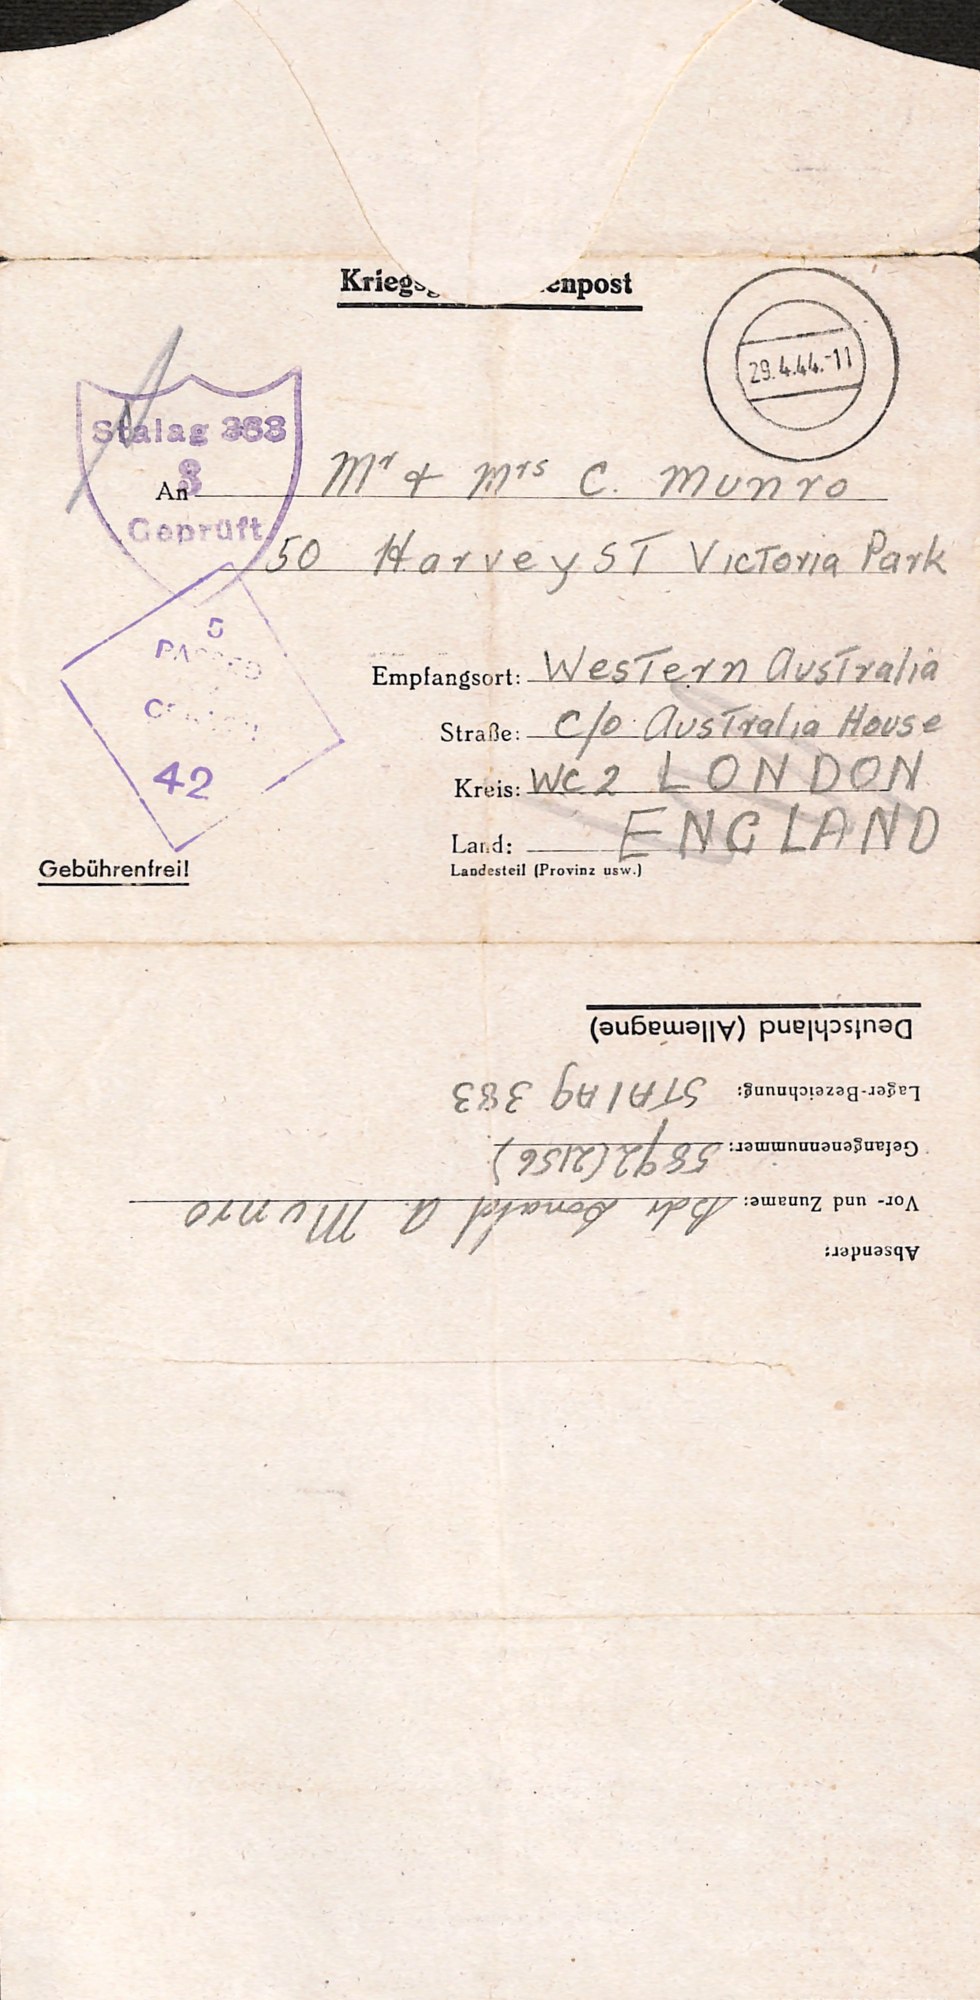 Kriegs enpost
29.4.44.-11
Stalag 383
8
Geprüft
An Mr & Mrs C. Munro
50 Harvey ST Victoria Park
5
PASSED
42
Empfangsort: Western Australia
Straße: c/o Australia House
Kreis: WC2 LONDON
Land: ENGLAND
Landesteil (Provinz usw.)
Gebührenfrei!
Absender:
Vor- und Zuname: Bdr Donald A. Munro
Gefangenennummer: 5892 (2156)
Lager-Bezeichnung: STAlAg 383
Deutschland (Allemagne)